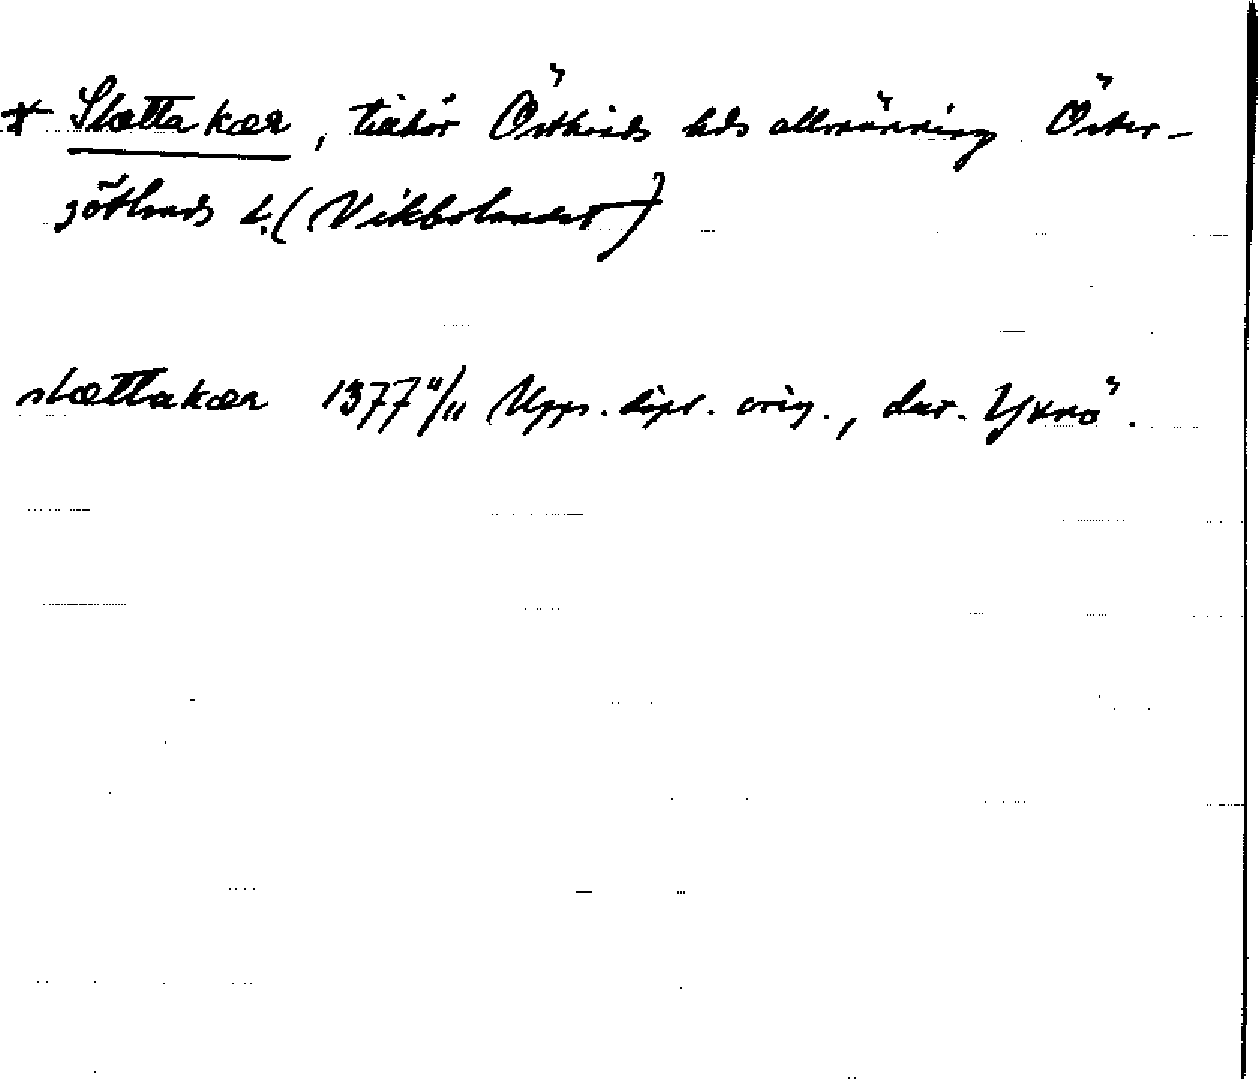 * Slætta kær, tillhör Östkinds hds allmänning Öster-
götlands l. (Vikbolandet)
slættakær 1377 4/11 Upps. dipl. orig., dat. Yxnö.